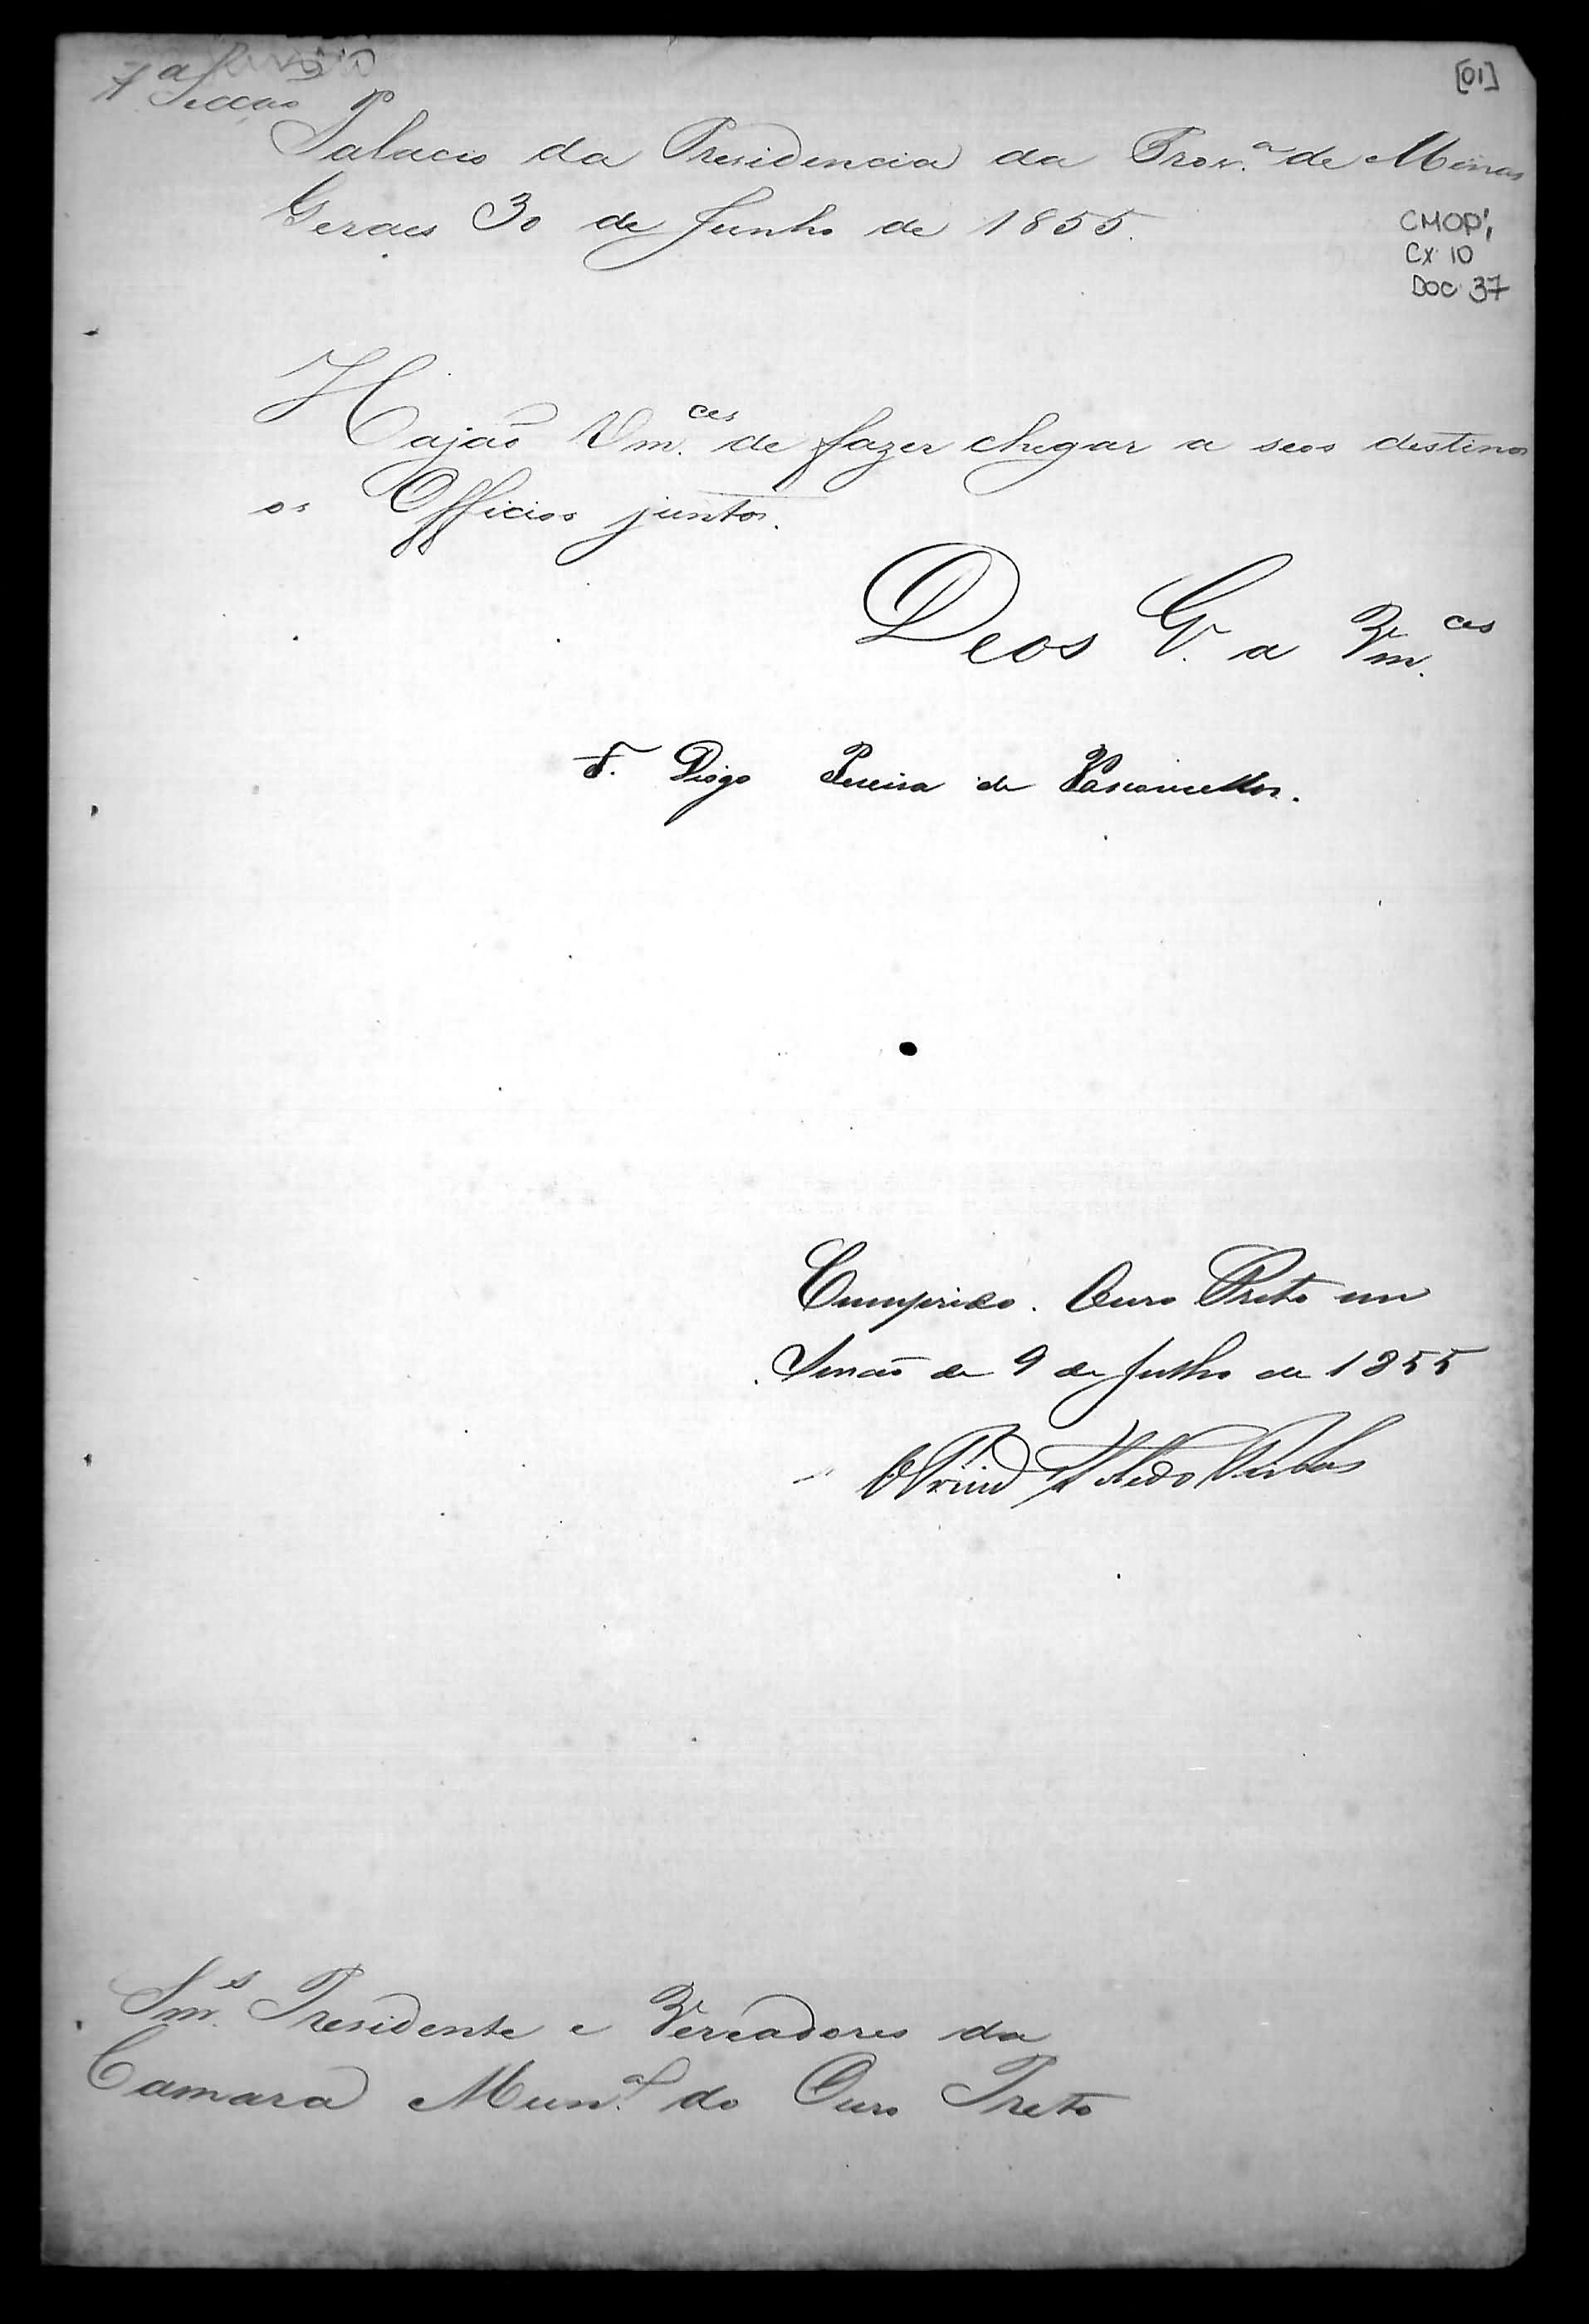 [01]
1ª Secção
Palacio da Presidencia da Prov.ª de Minas
Geraes 30 de Junho de 1855.
CMOP,
CX 10
DOC 37
Hajaõ Vm.ces de fazer chegar a seos destinos
os Officios juntos.
Deos G. a Vm.ces
F. Diogo Pereira de Vasconcellos.
Cumprido. Ouro Preto em
Sessaõ de 9 de Julho de 1855
Snr.s Presidente e Vereadores da
Camara Mun.al do Ouro Preto